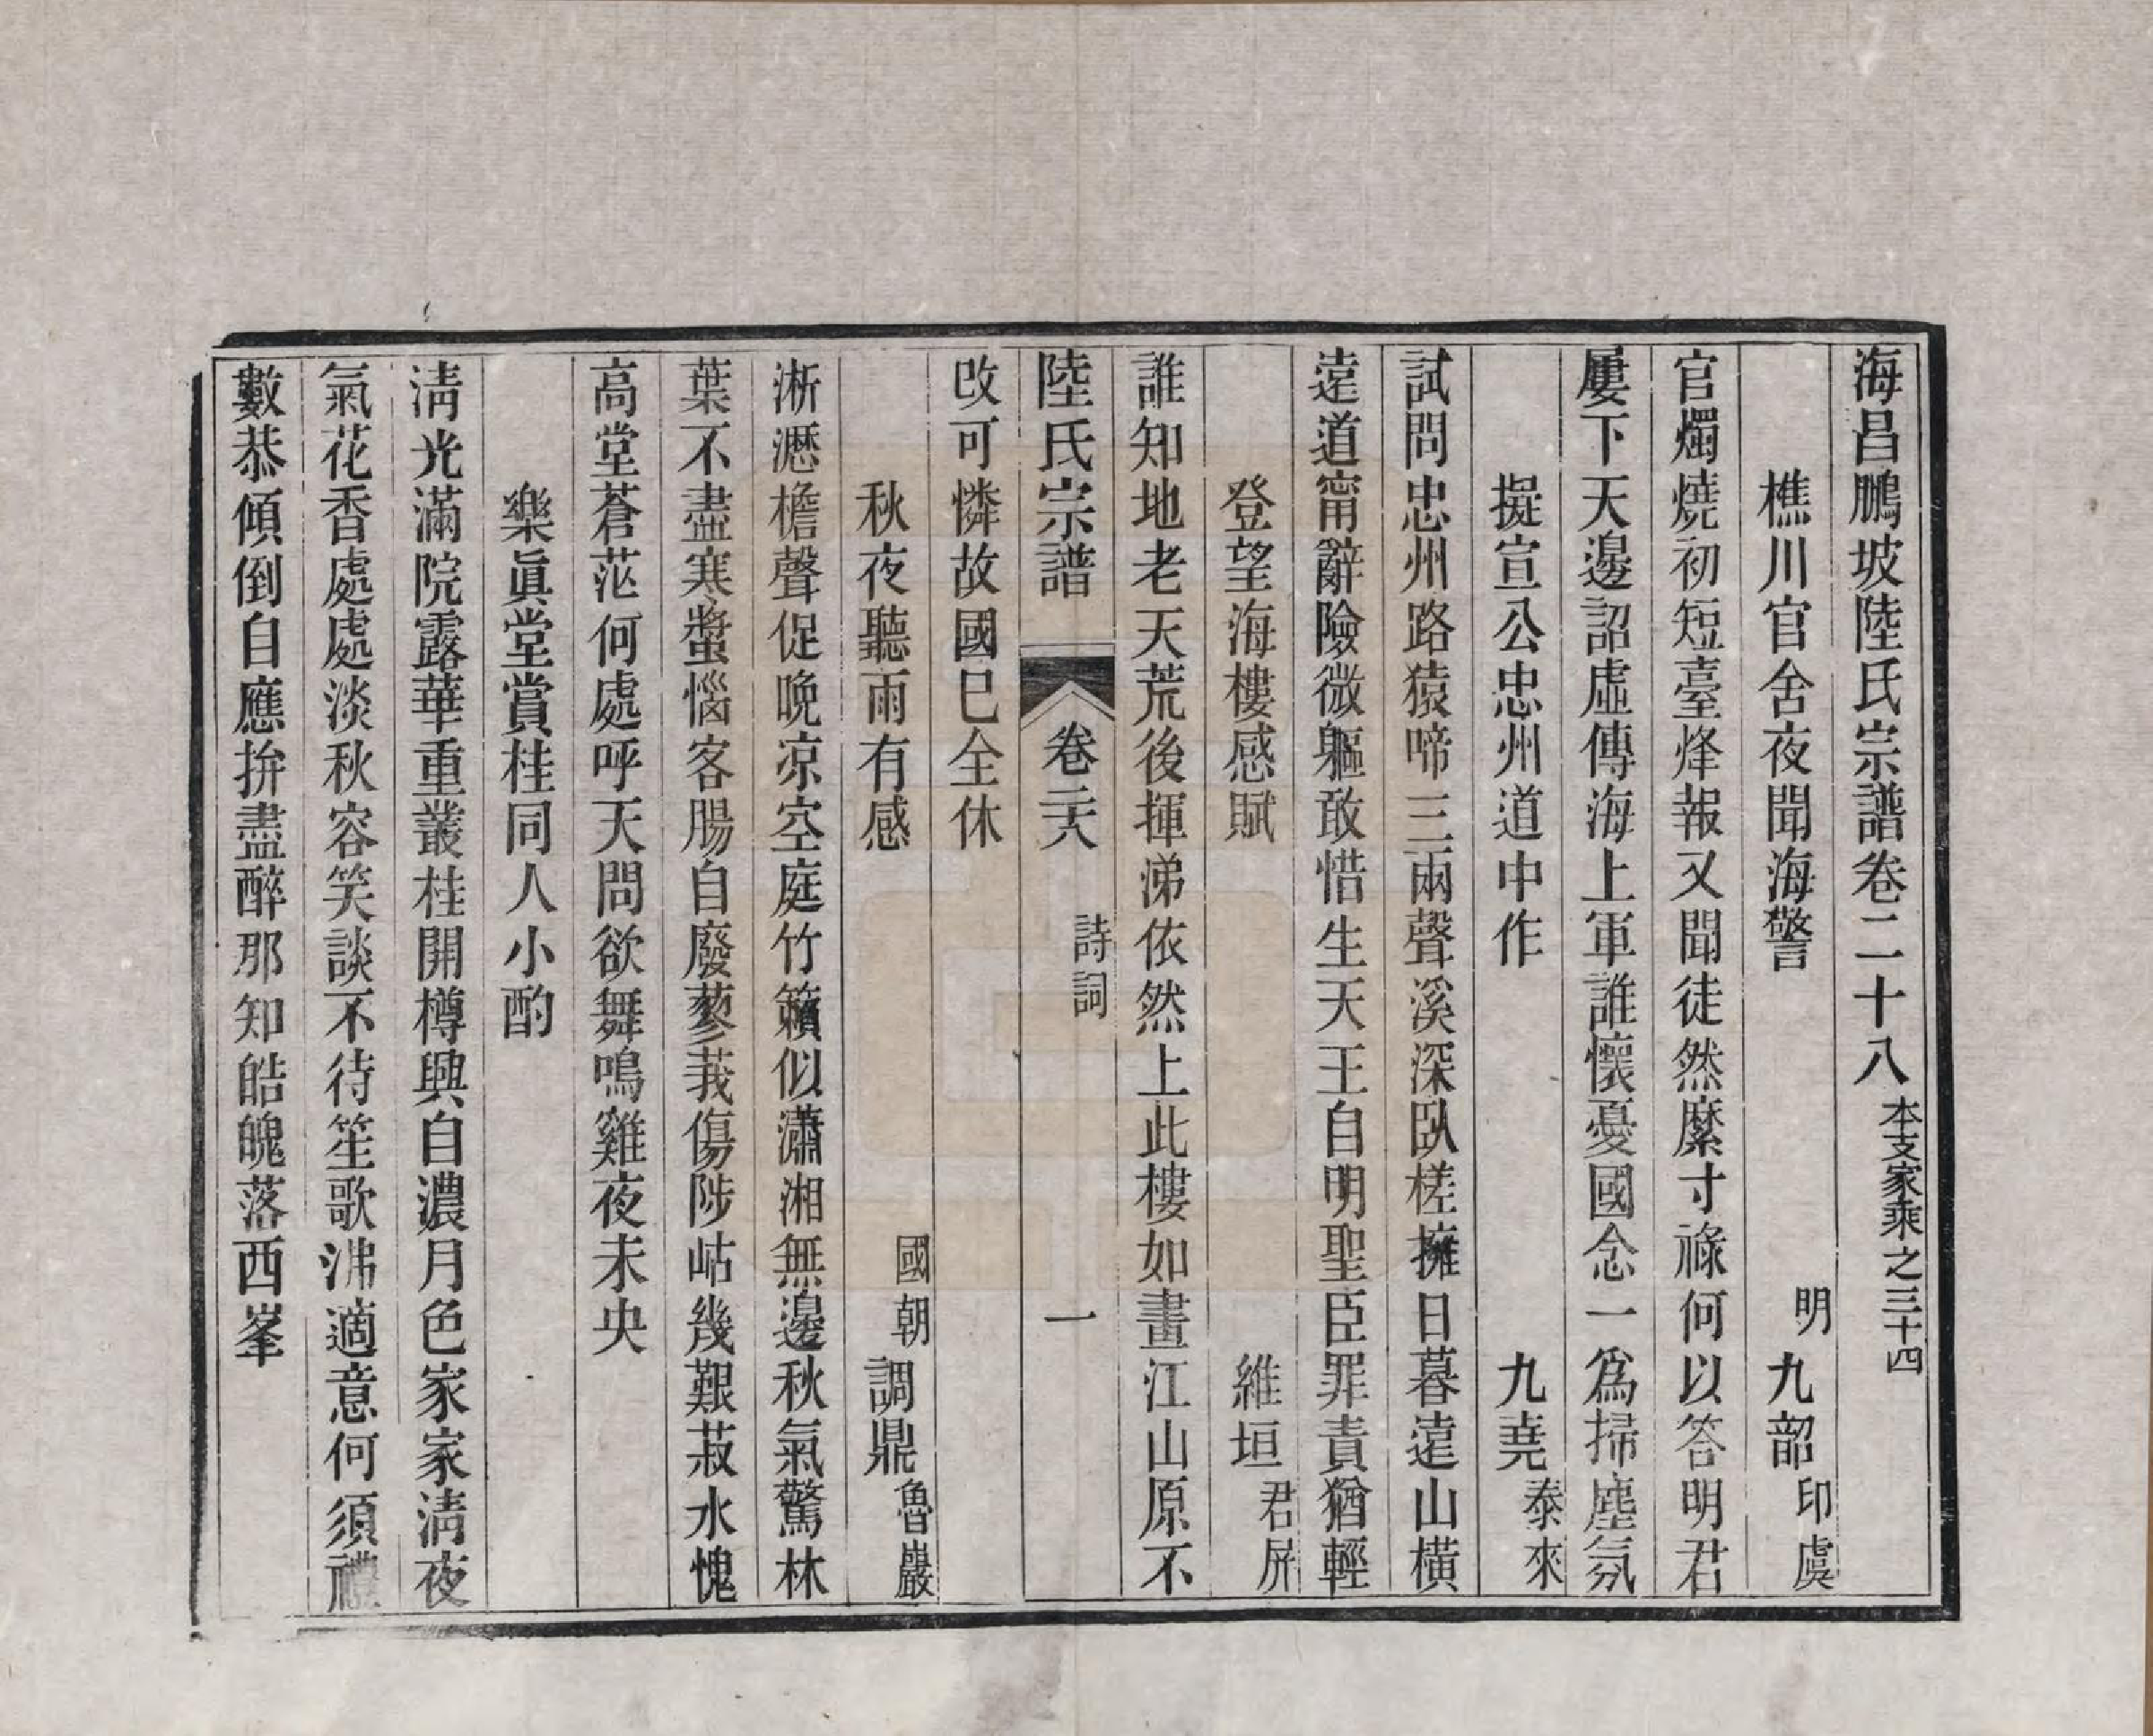 海昌鵬坡陸氏宗譜卷二十八 本支家乘之三十四
樵川官舍夜聞海警 明 九韶 印虞
官燭燒初短臺烽報又聞徒然縻寸祿何以答明君
屢下天邊詔虛傳海上軍誰懷憂國念一爲掃塵氛
擬宣公忠州道中作 九堯 泰來
試問忠州路猿啼三兩聲溪深臥槎擁日暮遠山橫
遠道甯辭險微軀敢惜生天王自明聖臣罪責猶輕
登望海樓感賦 維垣 君屏
誰知地老天荒後揮涕依然上此樓如畫江山原不
陸氏宗譜 卷二八 詩詞 一
改可憐故國已全休
秋夜聽雨有感 國朝 調鼎 魯巖
淅瀝檐聲促晚凉空庭竹籟似瀟湘無邊秋氣驚林
葉不盡寒螿惱客腸自廢蓼莪傷陟岵幾艱菽水愧
高堂蒼茫何處呼天問欲舞鳴雞夜未央
樂眞堂賞桂同人小酌
淸光滿院露華重叢桂開樽興自濃月色家家淸夜
氣花香處處淡秋容笑談不待笙歌沸適意何須禮
數恭傾倒自應拚盡醉那知皓魄落西峯